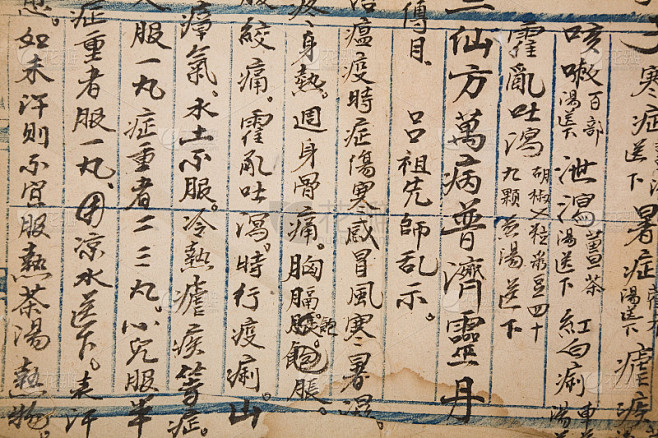 寒症 送下 暑症 湯送下 瘧疾
咳嗽 百部湯送下 泄瀉 薑茶湯送下 紅白痢
霍亂吐瀉 胡椒七粒菉豆四十九顆煎湯送下
三仙方萬病普濟靈丹
傳目。 呂祖先師乩示。
治瘟疫時症傷寒感冒風寒暑濕。
身熱。週身骨痛。胸膈飽脹。
絞痛。霍亂吐瀉。時行疫痢。山
瘴氣。水土不服。冷熱瘧疾等症。
服一丸症重者二三丸。小兒服半
症重者服一丸。用凉水送下。表汗
忌。如未汗則不宜服熱茶湯熱物。